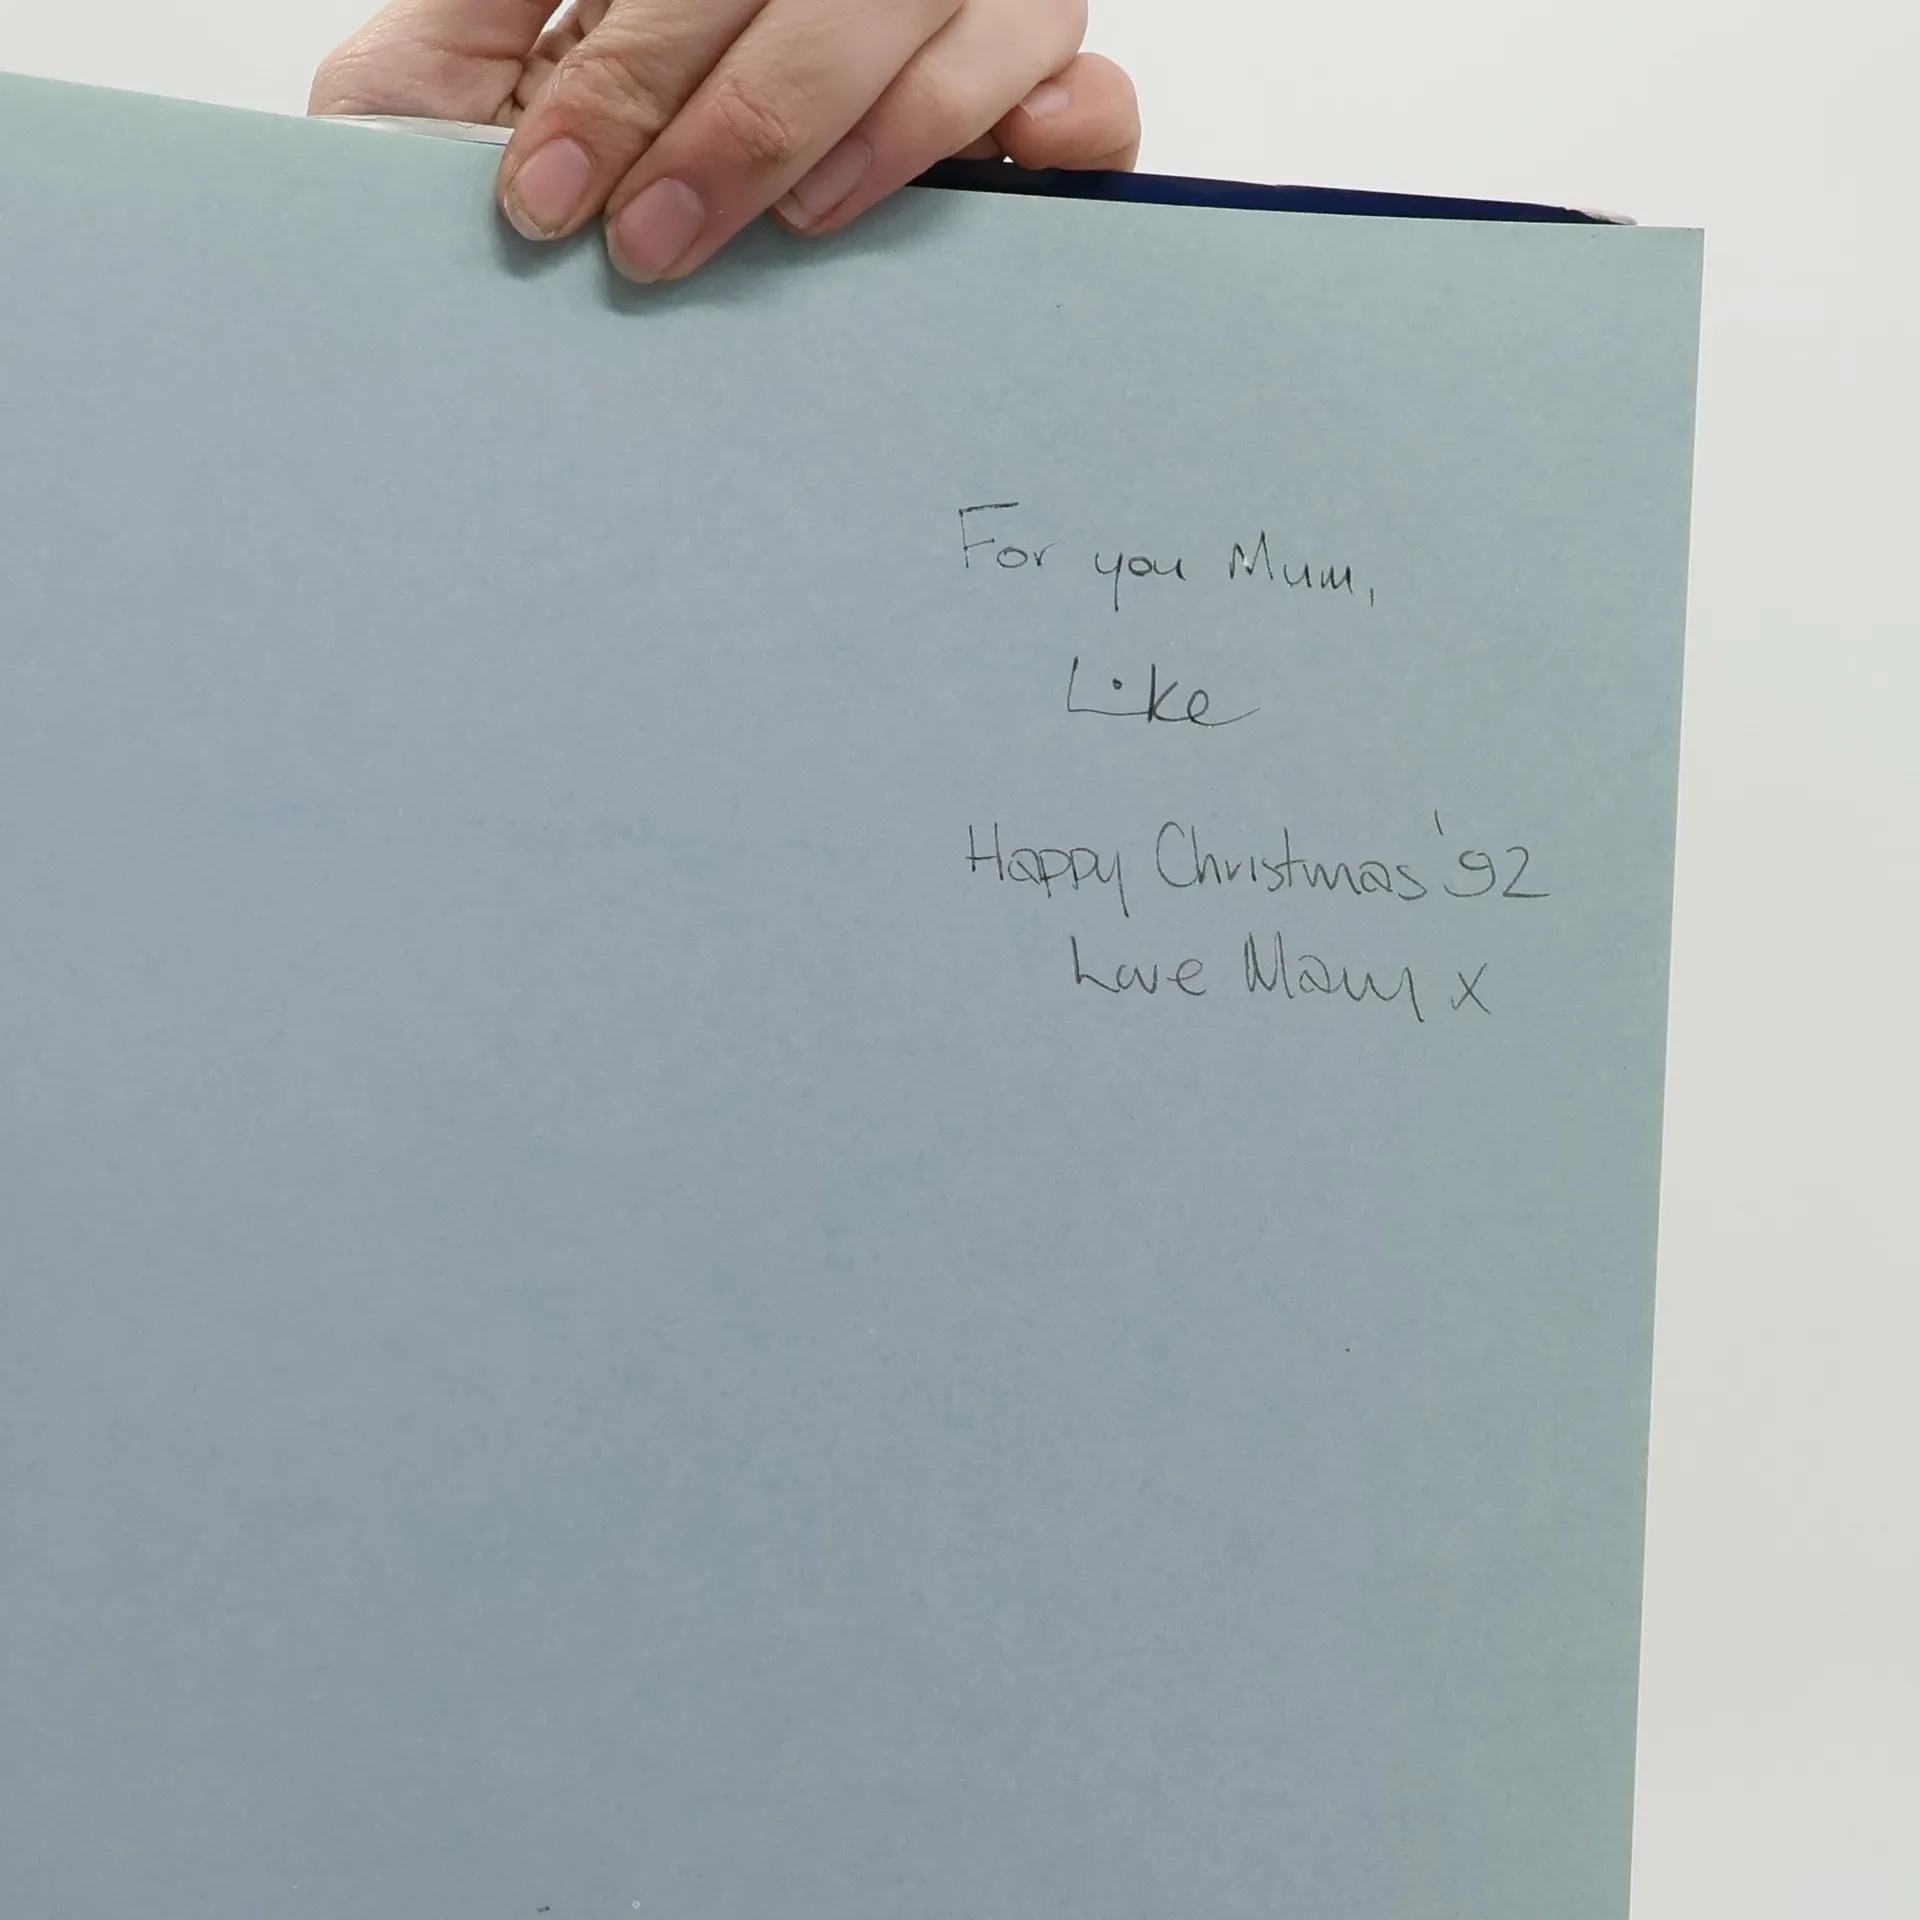 For you Mum,
Like
Happy Christmas '92
Love Mam x